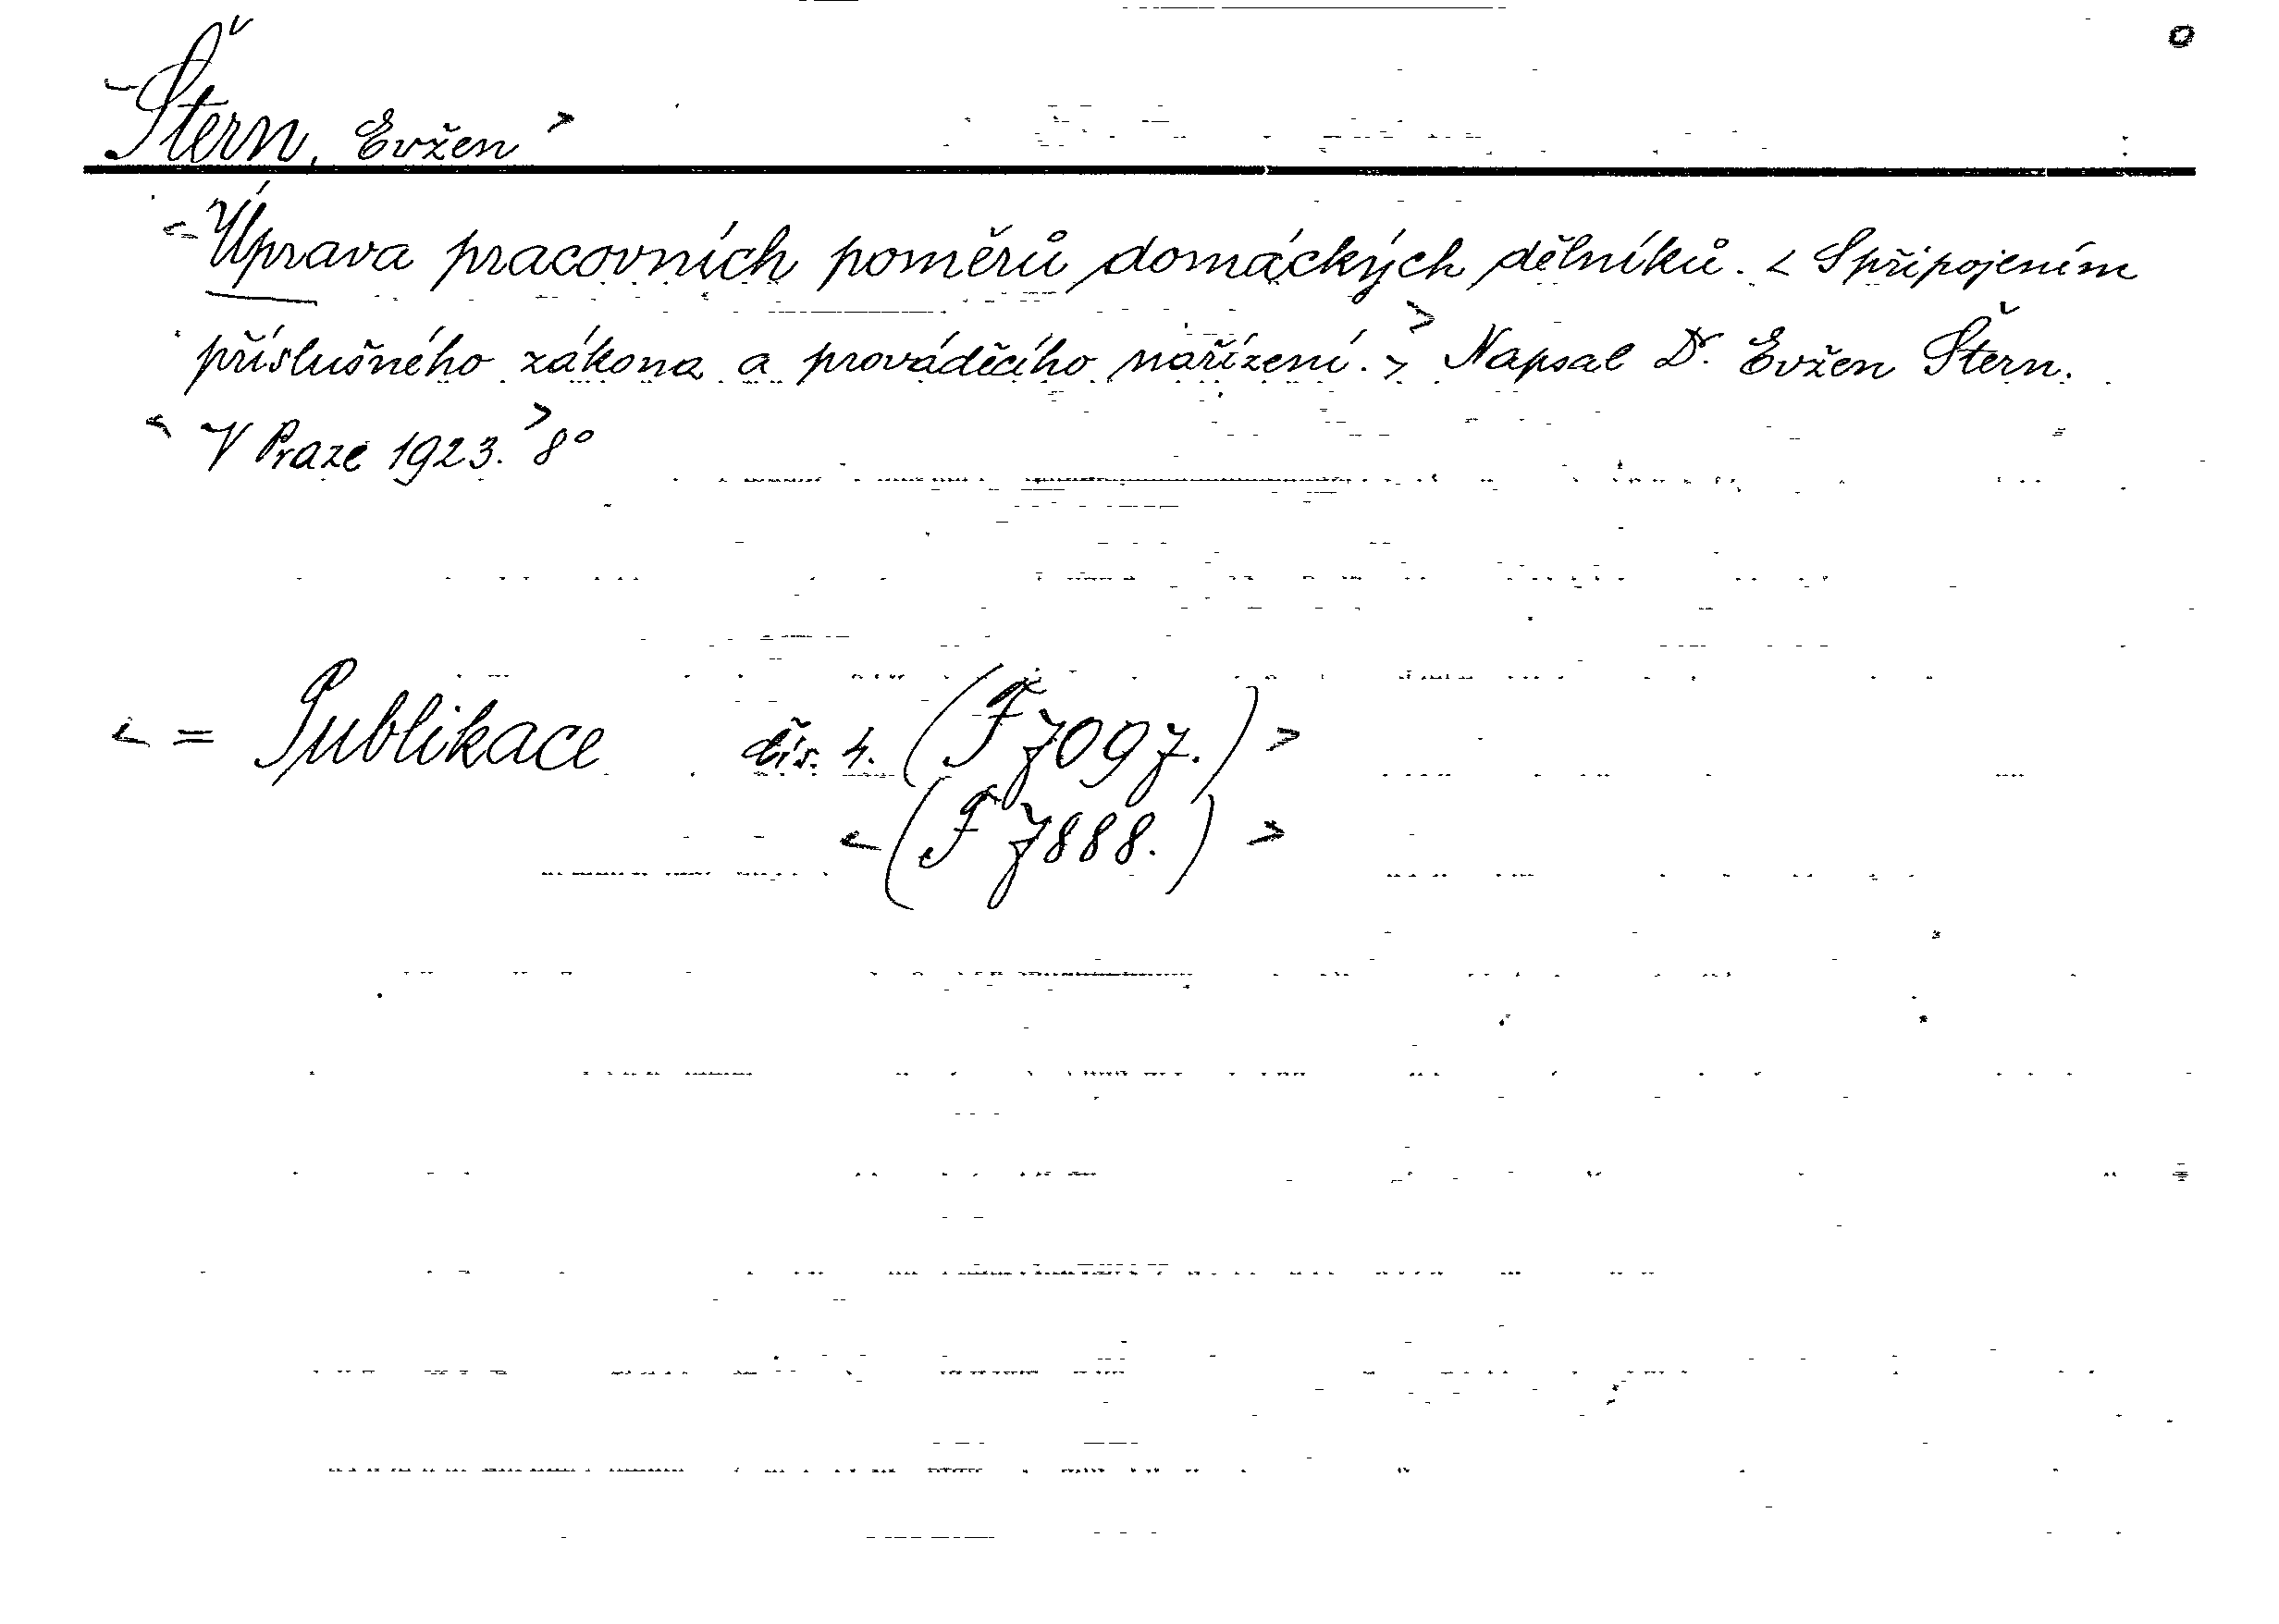 Štern, Evžen >
< Úprava pracovních poměrů domáckých dělníků. < S připojením
příslušného zákona a prováděcího nařízení. > > Napsal Dr. Evžen Štern.
< V Praze 1923. > 8°
< = Publikace čís. 4. (F 7097.) >
< (F 7888.) >